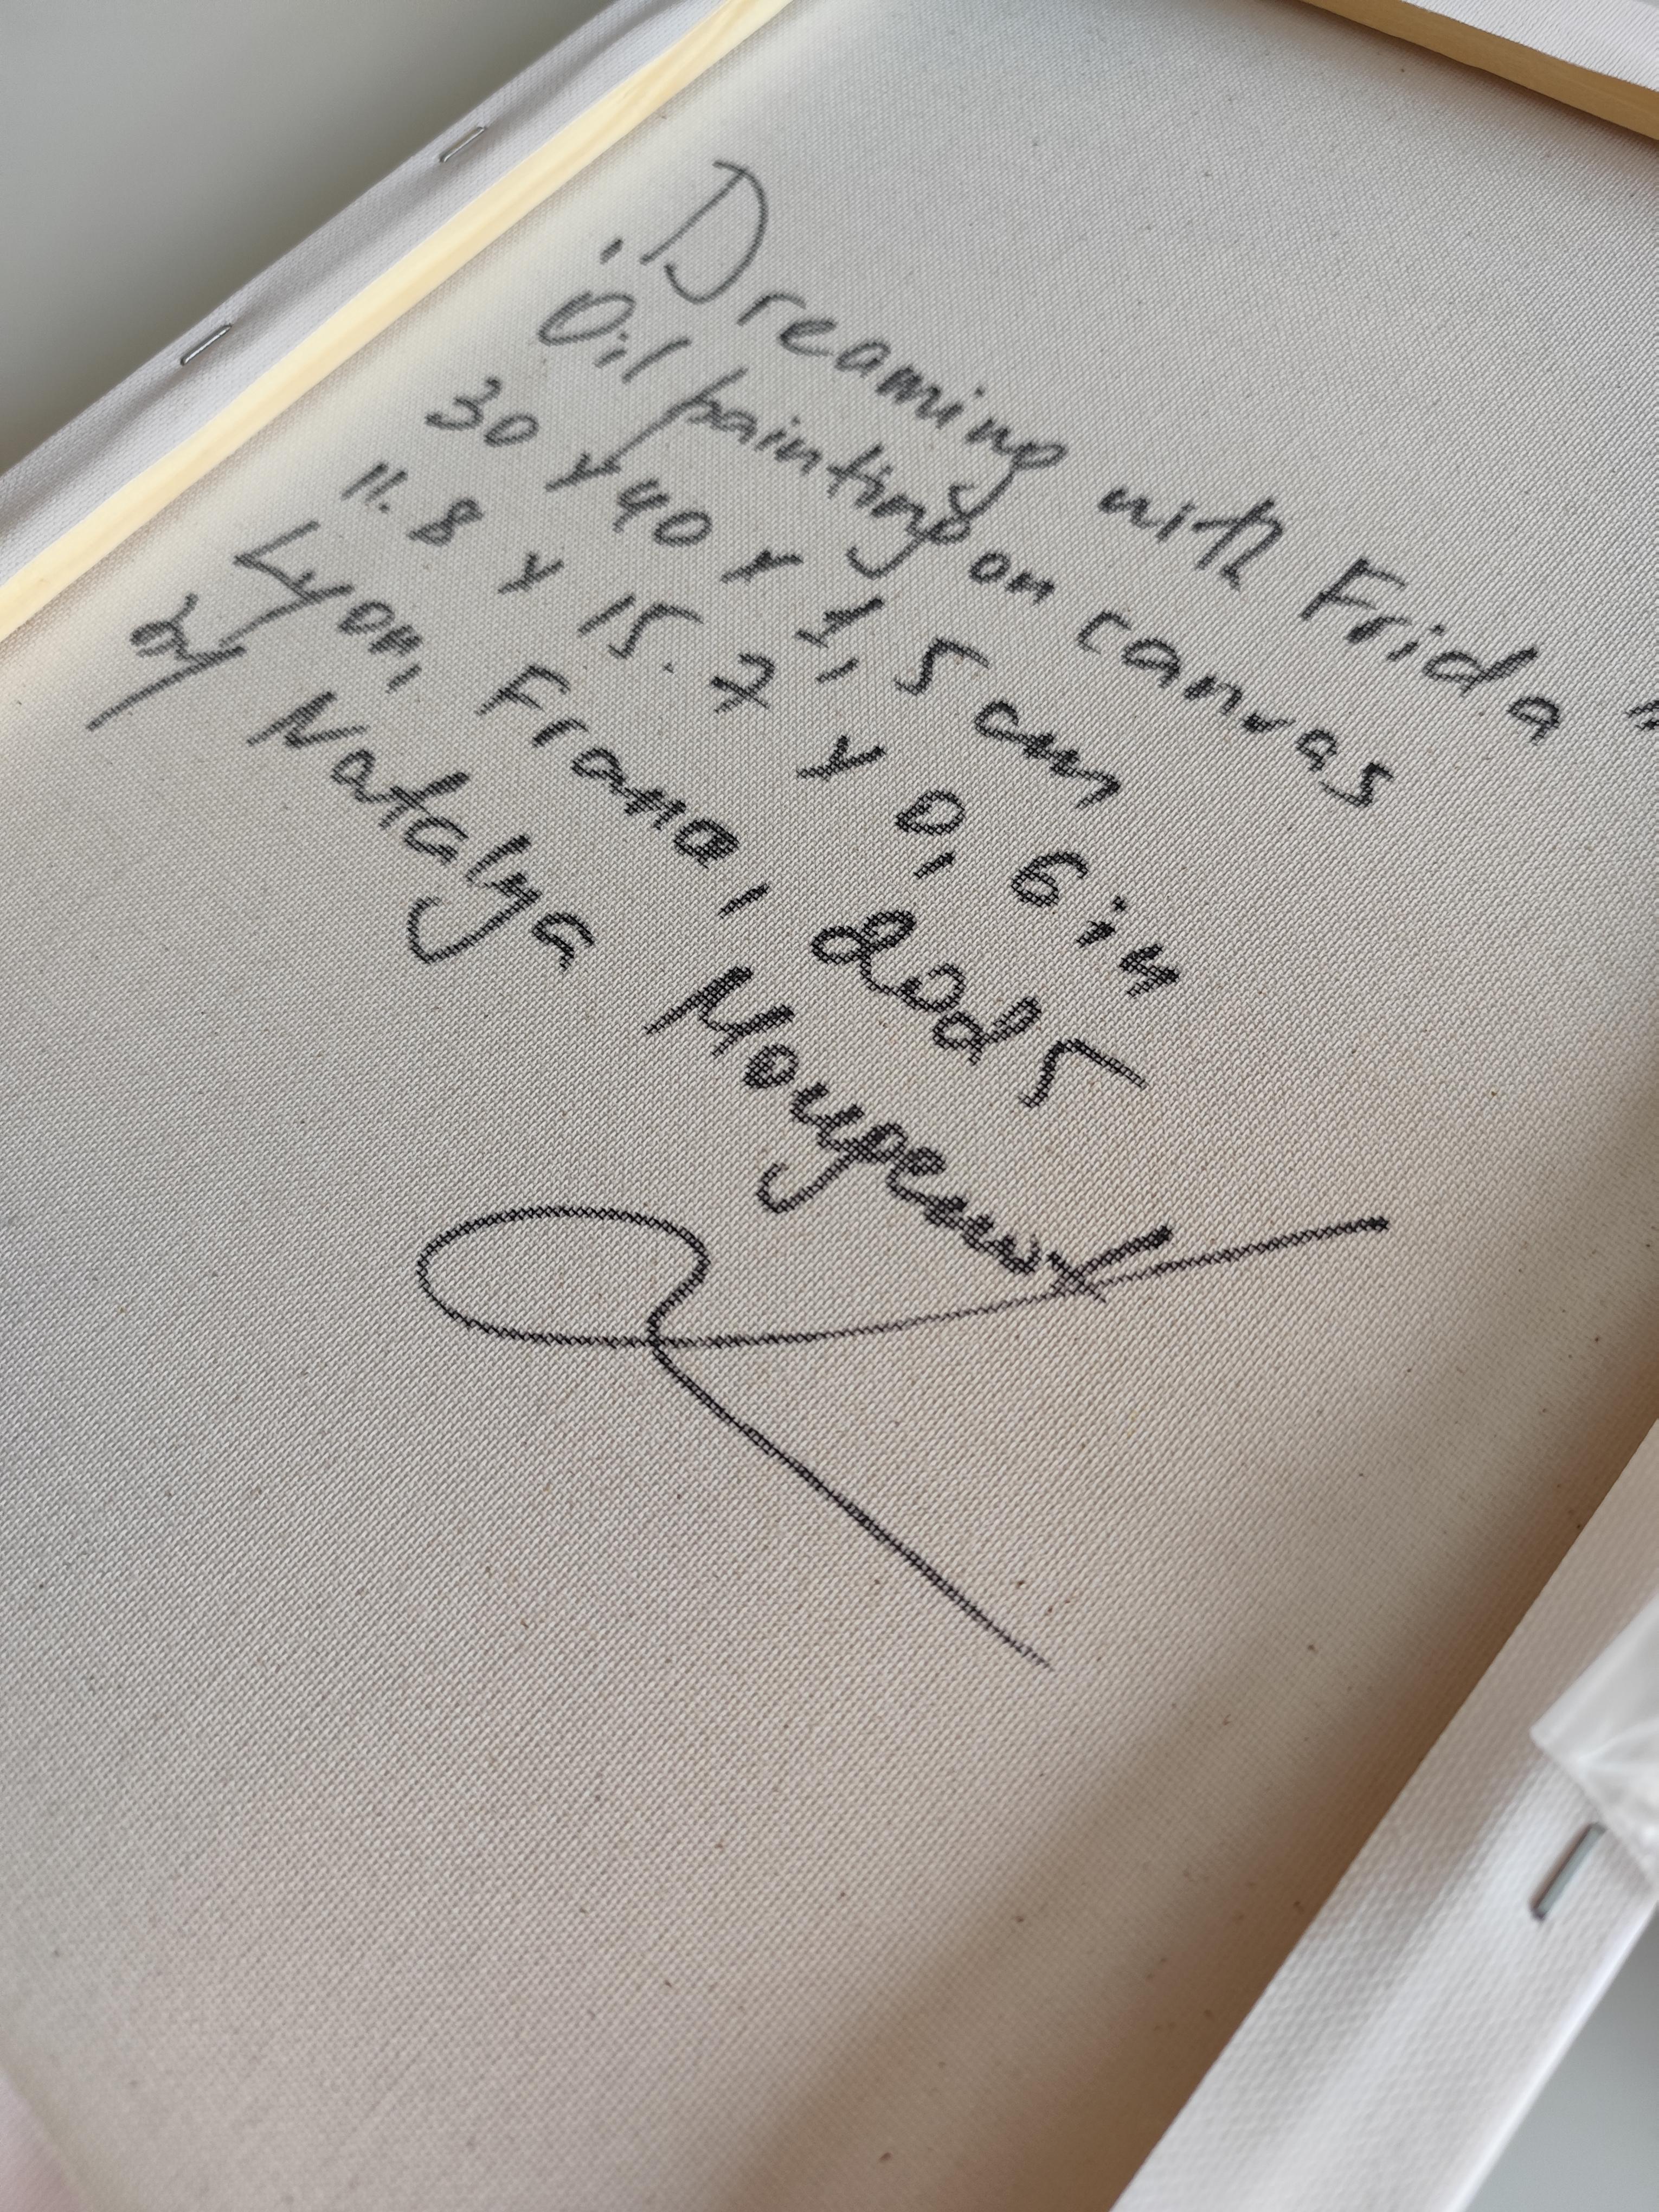 „Dreaming with Frida"
Oil painting on canvas
30 x 40 x 1,5 cm
11.8 x 15.7 x 0,6 in
Lyon, France, 2025
by Natalya